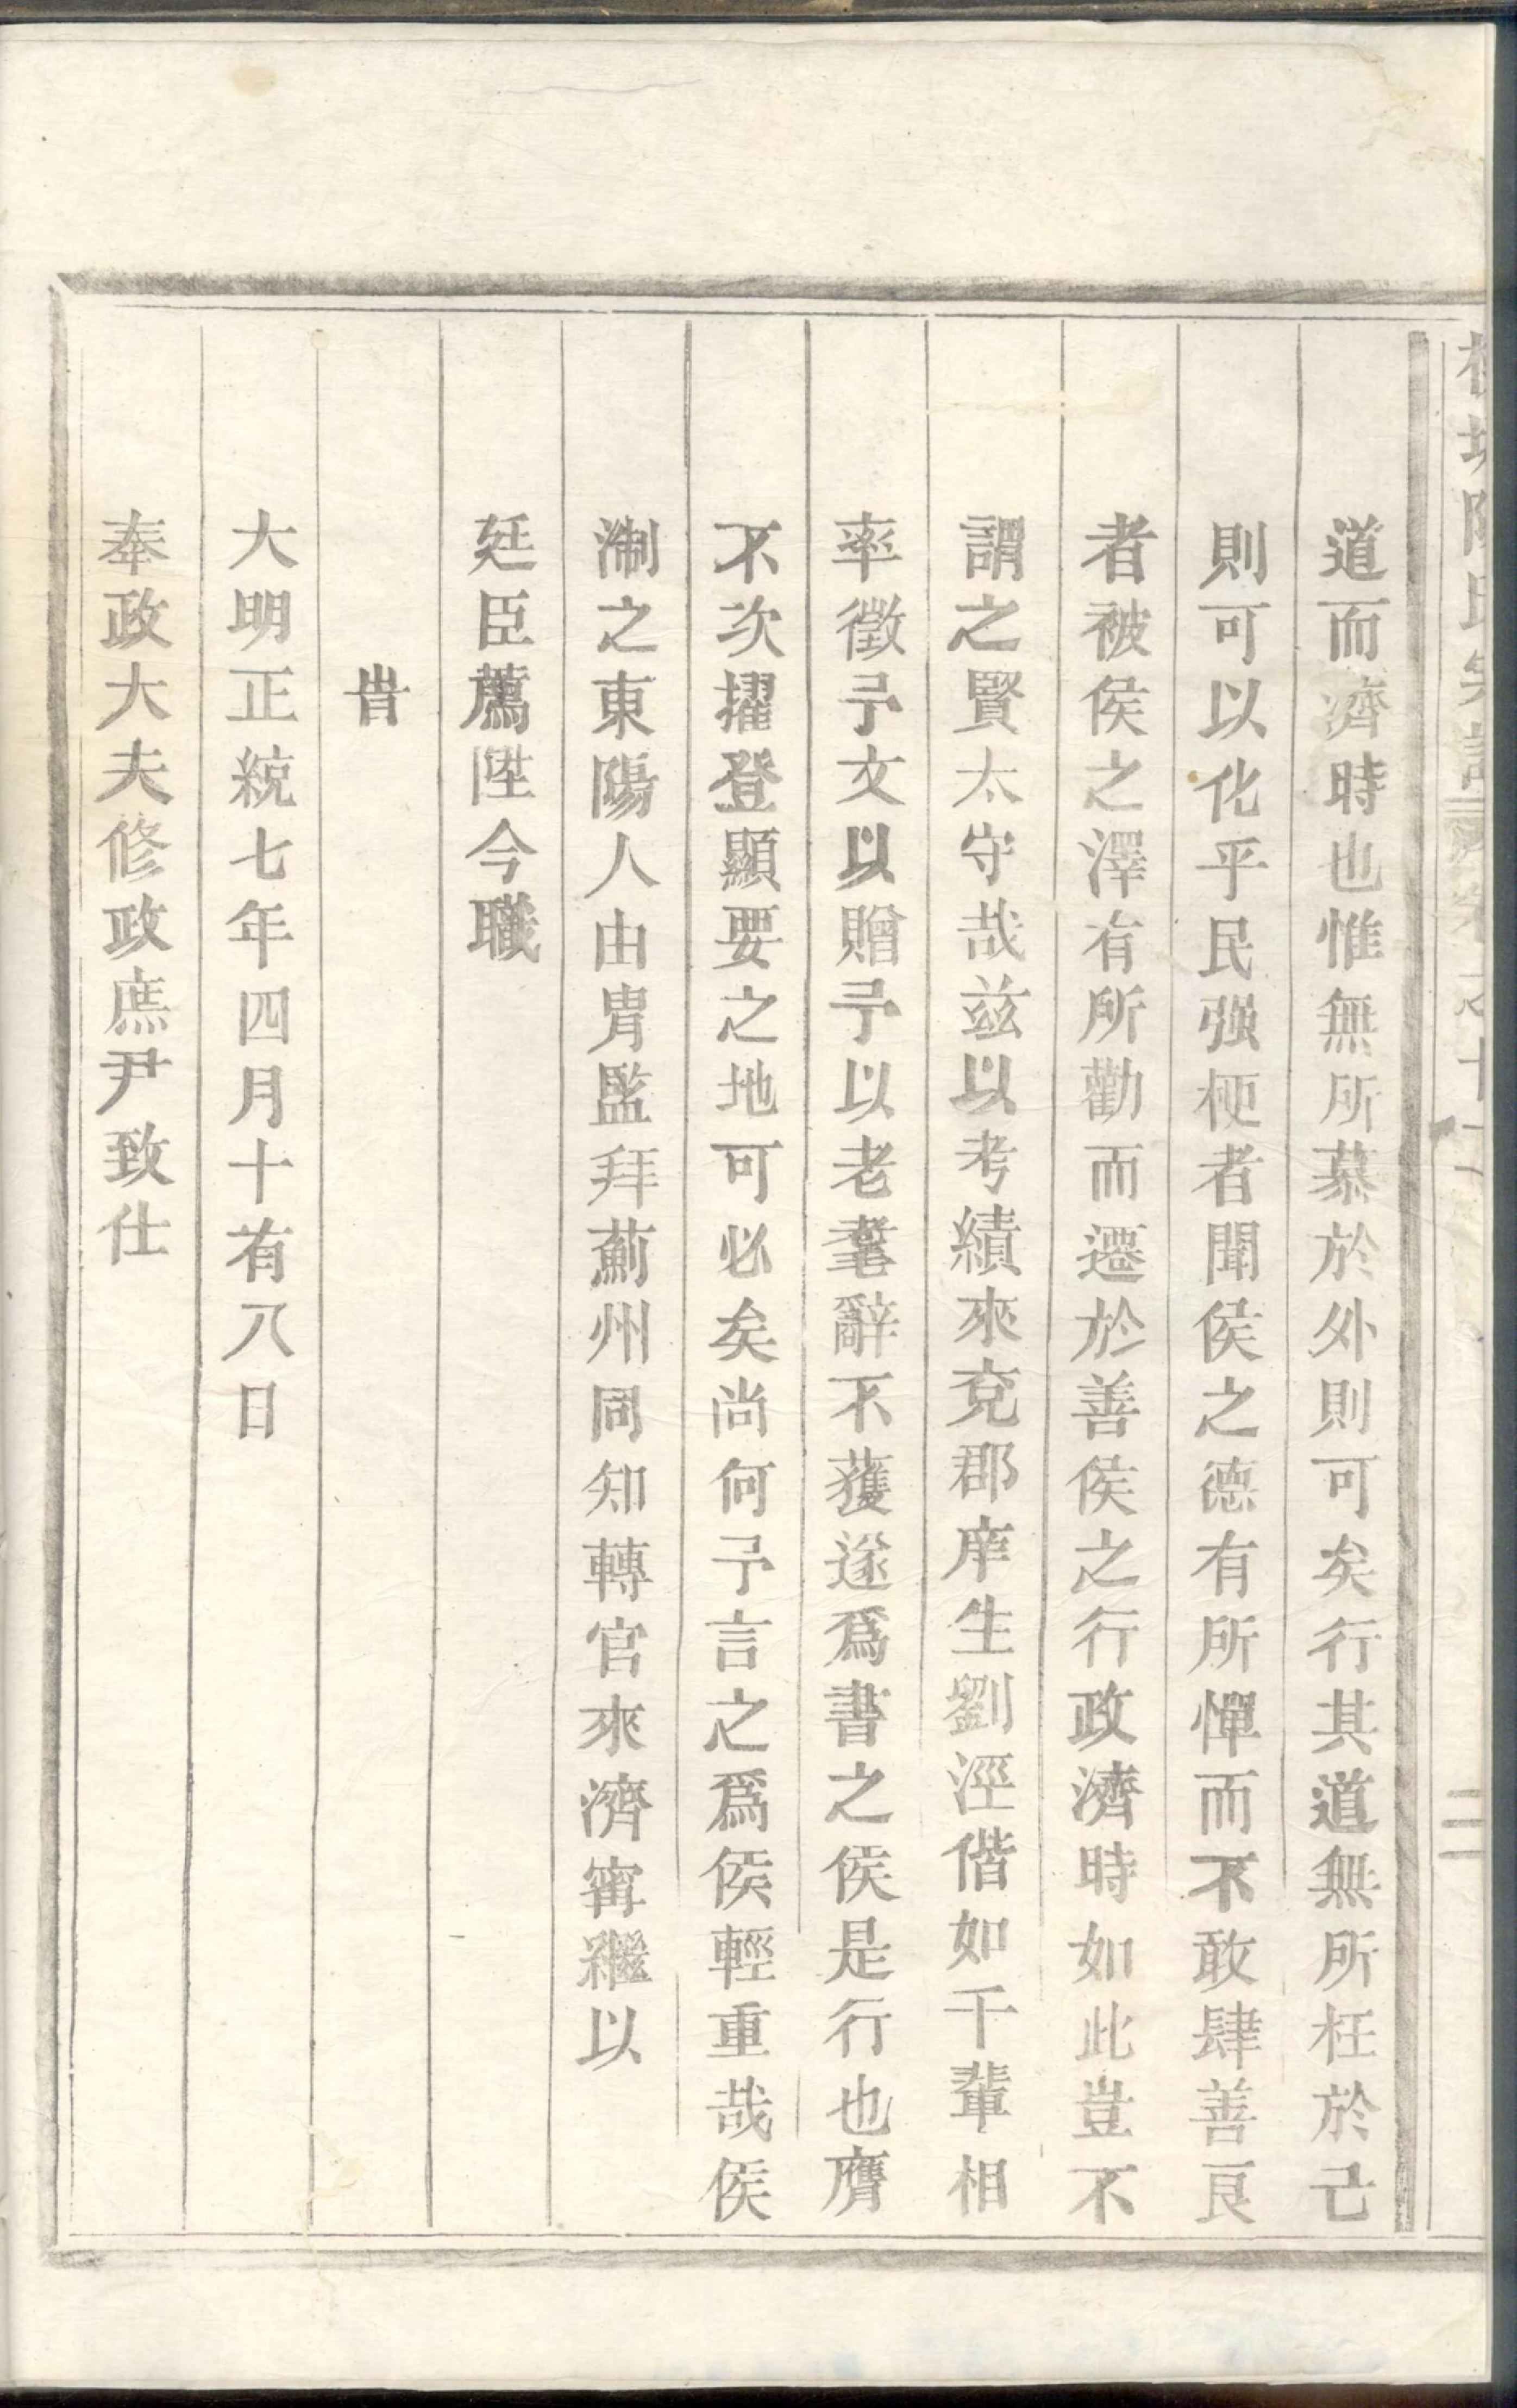 道而濟時也惟無所慕於外則可矣行其道無所枉於己
則可以化乎民强梗者聞侯之德有所憚而不敢肆善良
者被侯之澤有所勸而遷於善侯之行政濟時如此豈不
謂之賢太守哉兹以考績來兗郡庠生劉涇偕如千輩相
率徵予文以贈予以老耄辭不獲遂爲書之侯是行也膺
不次擢登顯要之地可必矣尚何予言之爲侯輕重哉侯
淛之東陽人由胄監拜薊州同知轉官來濟甯繼以
廷臣薦陞今職
旹
大明正統七年四月十有八日
奉政大夫修政庶尹致仕